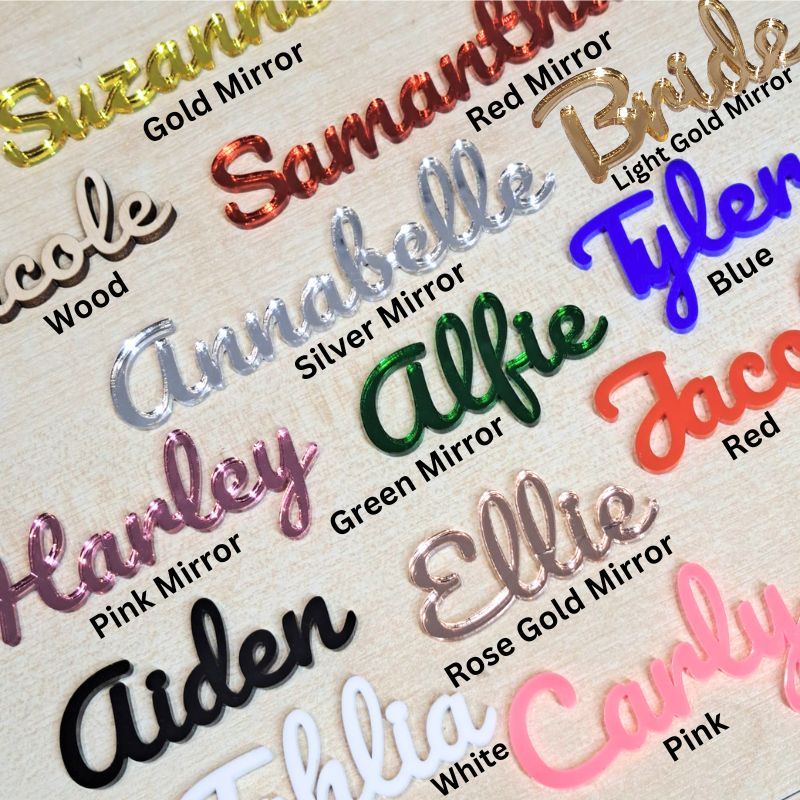 Suzanne
Gold Mirror
Samantha
Red Mirror
Bride
Light Gold Mirror
icole
Wood
Annabelle
Silver Mirror
Tyler
Blue
Alfie
Green Mirror
Jaco
Red
Harley
Pink Mirror
Ellie
Rose Gold Mirror
Aiden
Carly
Pink
White